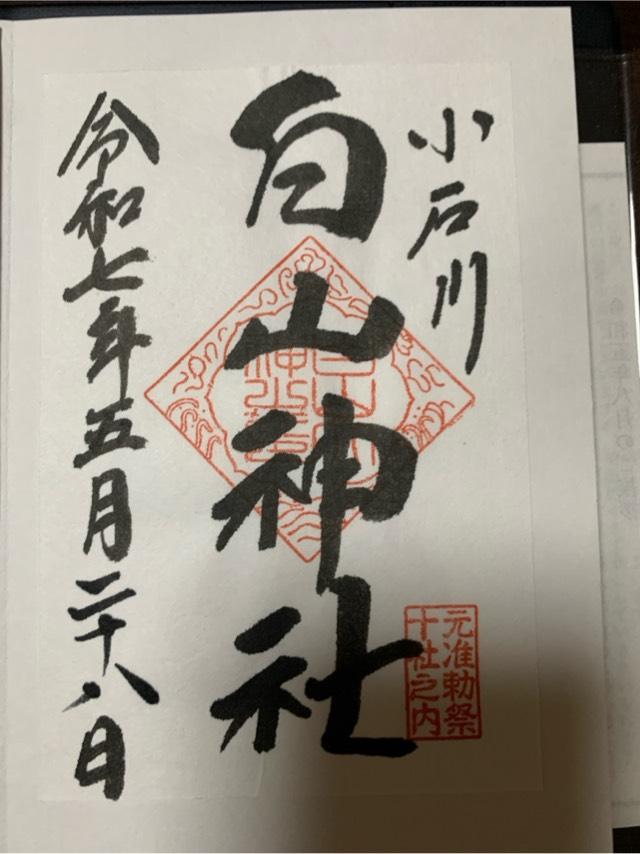 小石川
白山神社
元准勅祭
十社之内
令和七年五月二十八日